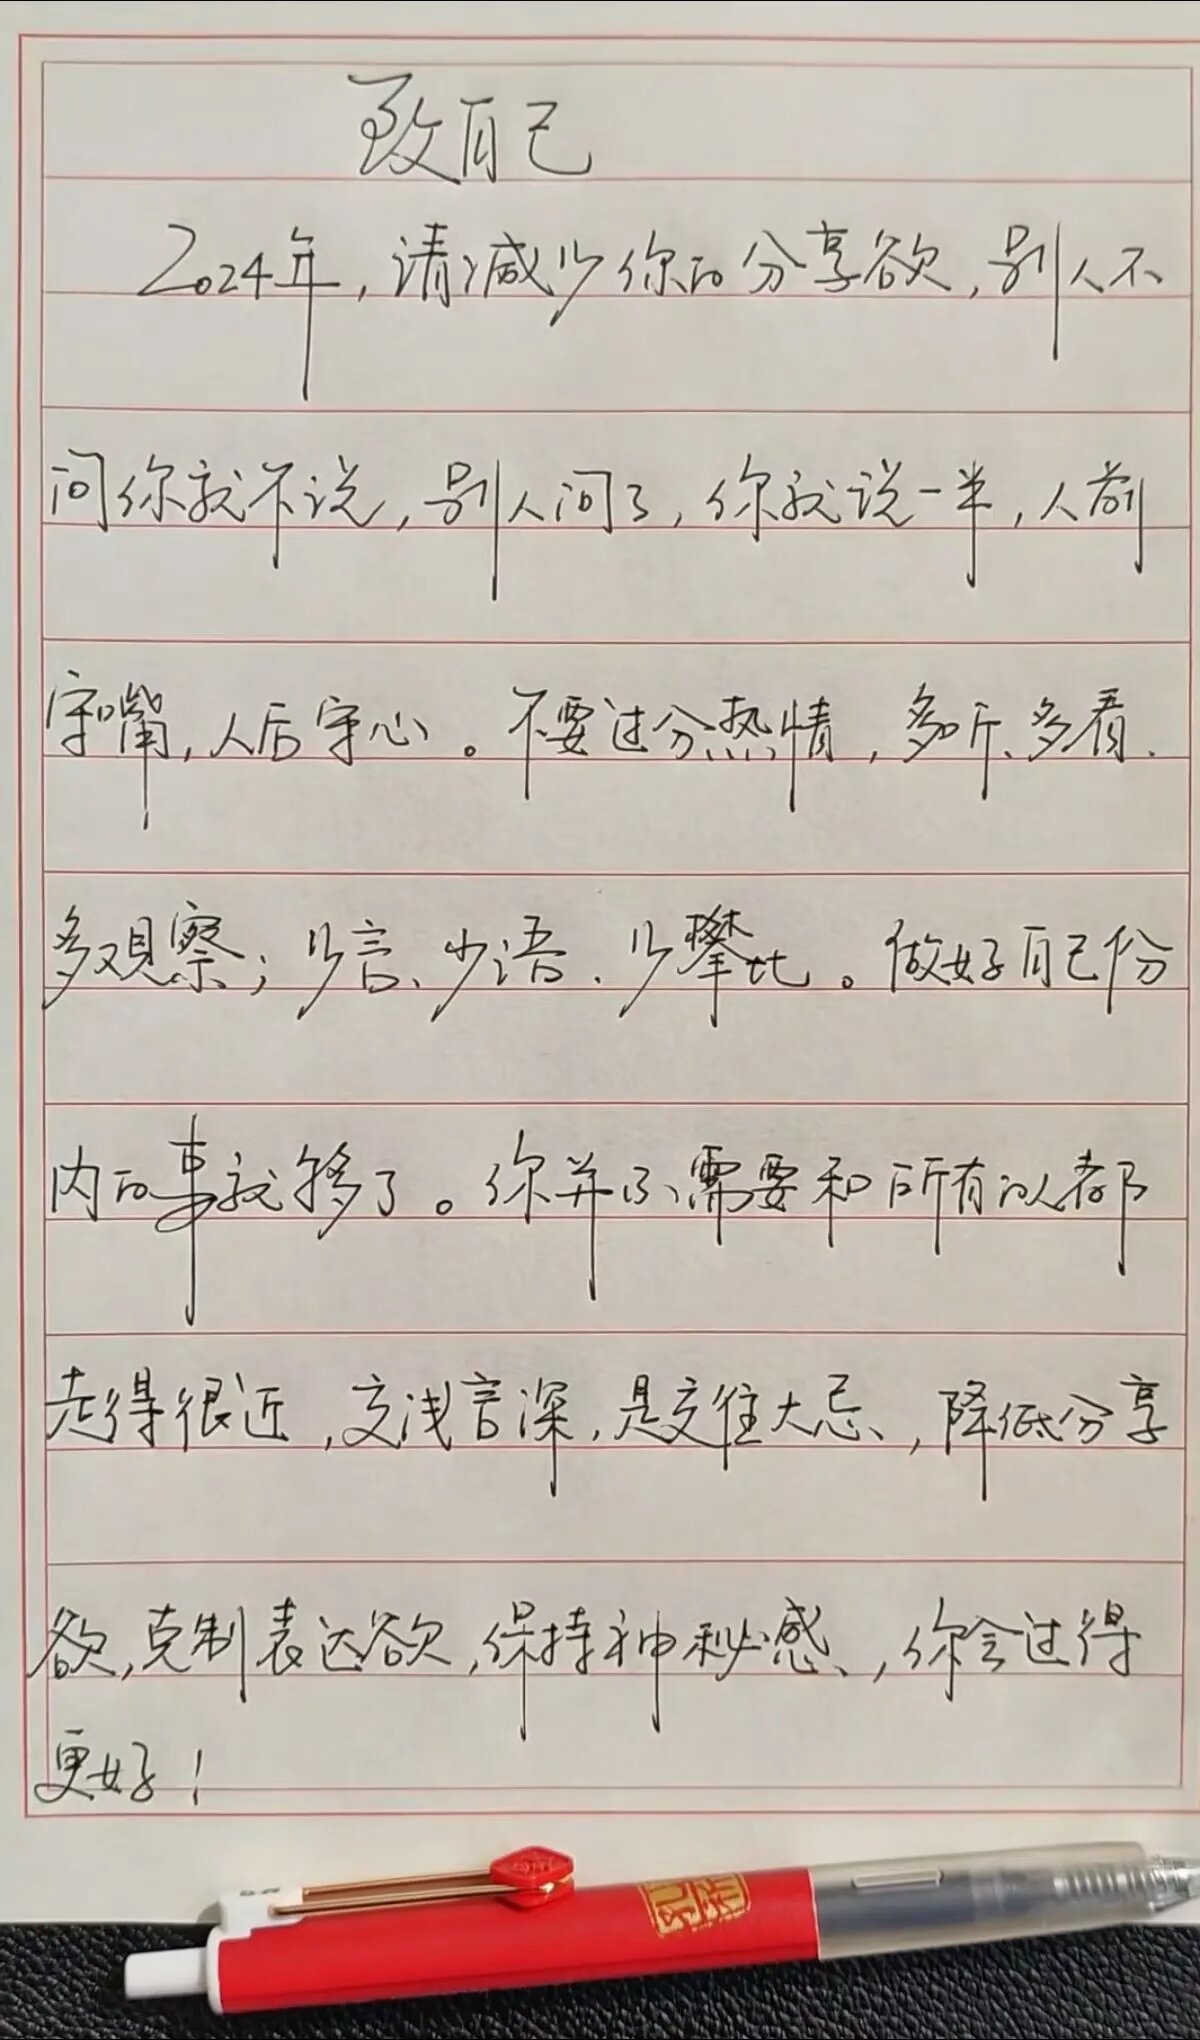 致自己
2024年，请减少你的分享欲，别人不
问你就不说，别人问了，你就说一半，人前
守嘴，人后守心。不要过分热情，多听、多看、
多观察；少言、少语、少攀比。做好自己份
内的事就够了。你并不需要和所有的人都
走得很近，交浅言深，是交往大忌，降低分享
欲，克制表达欲，保持神秘感，你会过得
更好！